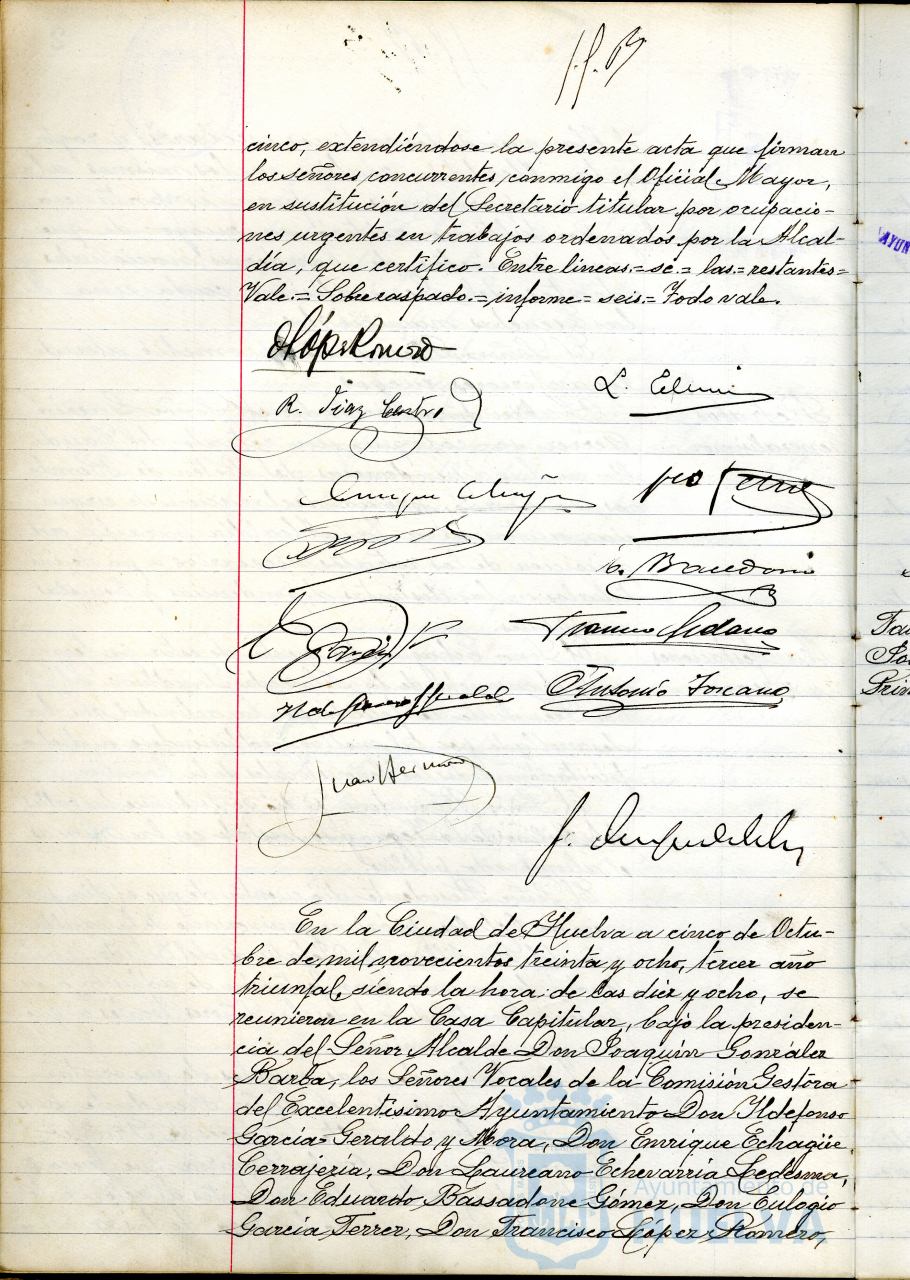 cinco, extendiéndose la presente acta que firman
los señores concurrentes conmigo el Oficial Mayor,
en sustitución del Secretario titular por ocupacio-
nes urgentes en trabajos ordenados por la Alcal-
día, que certifico. Entre líneas.=se.=las.=restantes=
Vale.=Sobre raspado.=informe=seis.=Todo vale.
R. Díaz Castro
Antonio Toscano
En la Ciudad de Huelva a cinco de Octu-
bre de mil novecientos treinta y ocho, tercer año
triunfal, siendo la hora de las diez y ocho, se
reunieron en la Casa Capitular, bajo la presiden-
cia del Señor Alcalde Don Joaquín González
Barba, los Señores Vocales de la Comisión Gestora
del Excelentísimo Ayuntamiento Don Ildefonso
García-Geraldo y Mora, Don Enrique Echagüe
Cerrajería, Don Laureano Echevarría Ledesma,
Don Eduardo Bassadone Gómez, Don Eulogio
García Ferrer, Don Francisco López Romero,
Ayuntamiento de
HUELVA
AYUN